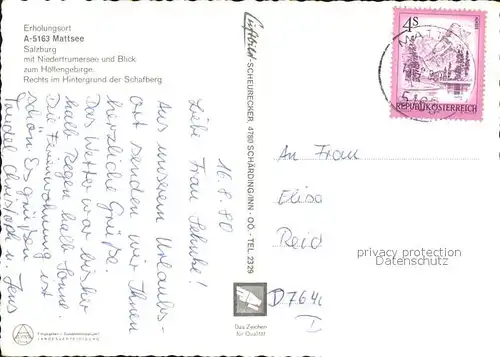 Erholungsort
A-5163 Mattsee
Salzburg
mit Niedertrumersee und Blick
zum Höllengebirge.
Rechts im Hintergrund der Schafberg
16.8.80
Liebe Frau Schulze!
Aus unserem Urlaubs-
ort senden wir Ihnen
herzliche Grüße.
Das Wetter war bisher
halb Regen halb Sonne.
Die Ferienwohnung ist
schön. Es grüßen
Christoph u. Jens
Luftbild-SCHEURECKER 4780 SCHÄRDING/INN - OÖ. - TEL 2329
Das Zeichen
für Qualität
4S
REPUBLIK ÖSTERREICH
MATT
An Frau
Elisa
Reid
D764
D
privacy protection
Datenschutz
LANDESVERTEIDIGUNG